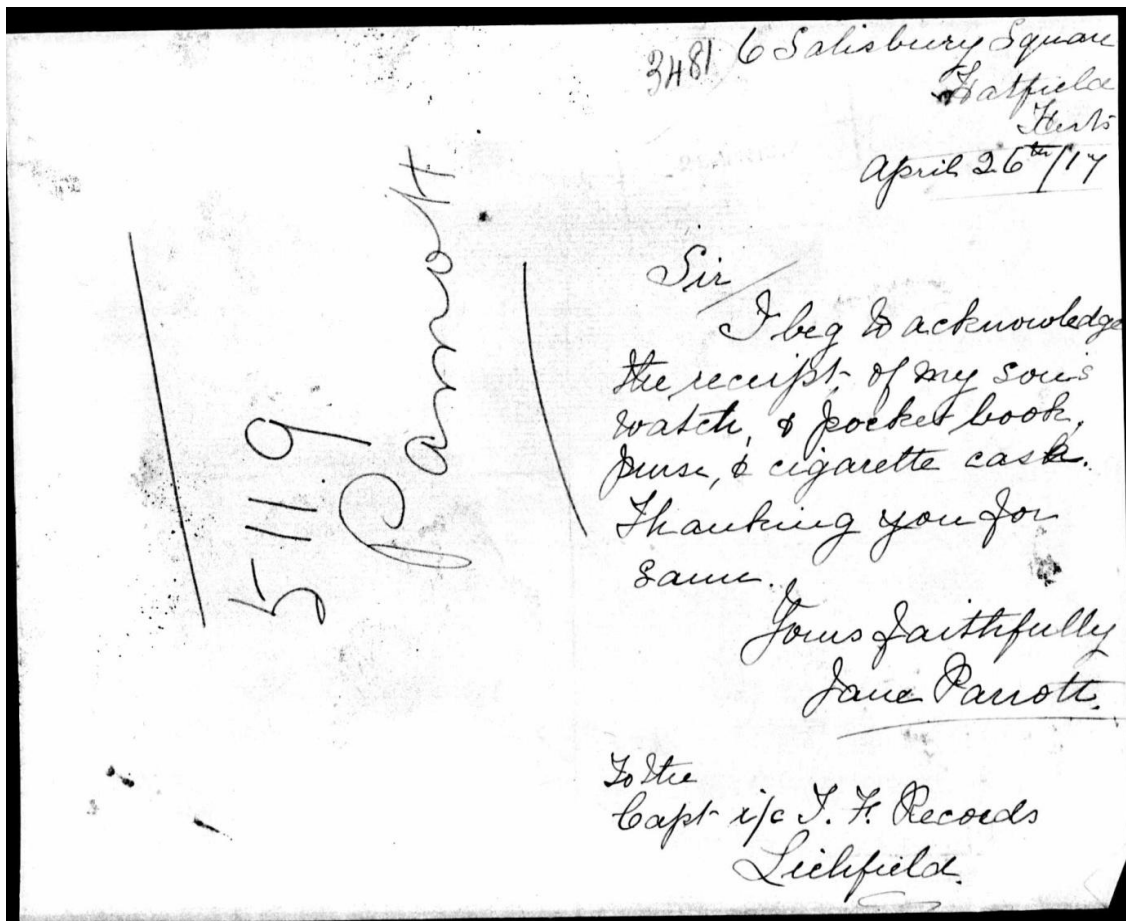 3481 6 Salisbury Square
Hatfield
Herts
April 26th/17
Sir
I beg to acknowledge
the receipt, of my son's
watch, & pocket book,
purse, & cigarette case.
Thanking you for
same.
Yours faithfully
Jane Parrott.
To the
Capt i/c T. F. Records
Lichfield.
5119
Parrott